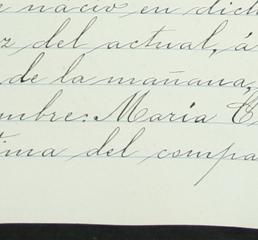 e nació en dich
z del actual, á
de la mañana,
ombre: María C
tima del compa